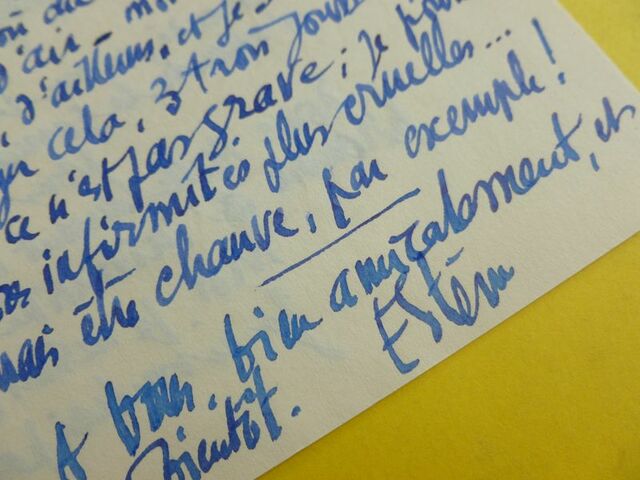 d'air - 
d'ailleurs, et je
cela, 3 trois jours
ce n'est pas grave ; je
infirmités plus cruelles...
être chauve, par exemple !
A vous, bien amicalement, et
bientôt.
Estèm